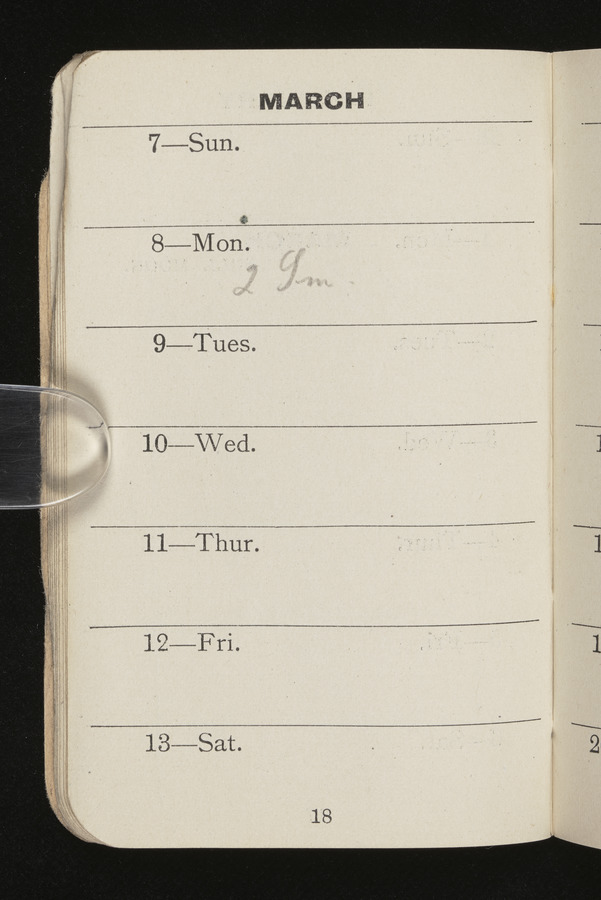 MARCH
7—Sun.
8—Mon.
2
9—Tues.
10—Wed.
11—Thur.
12—Fri.
13—Sat.
18
1
1
1
2